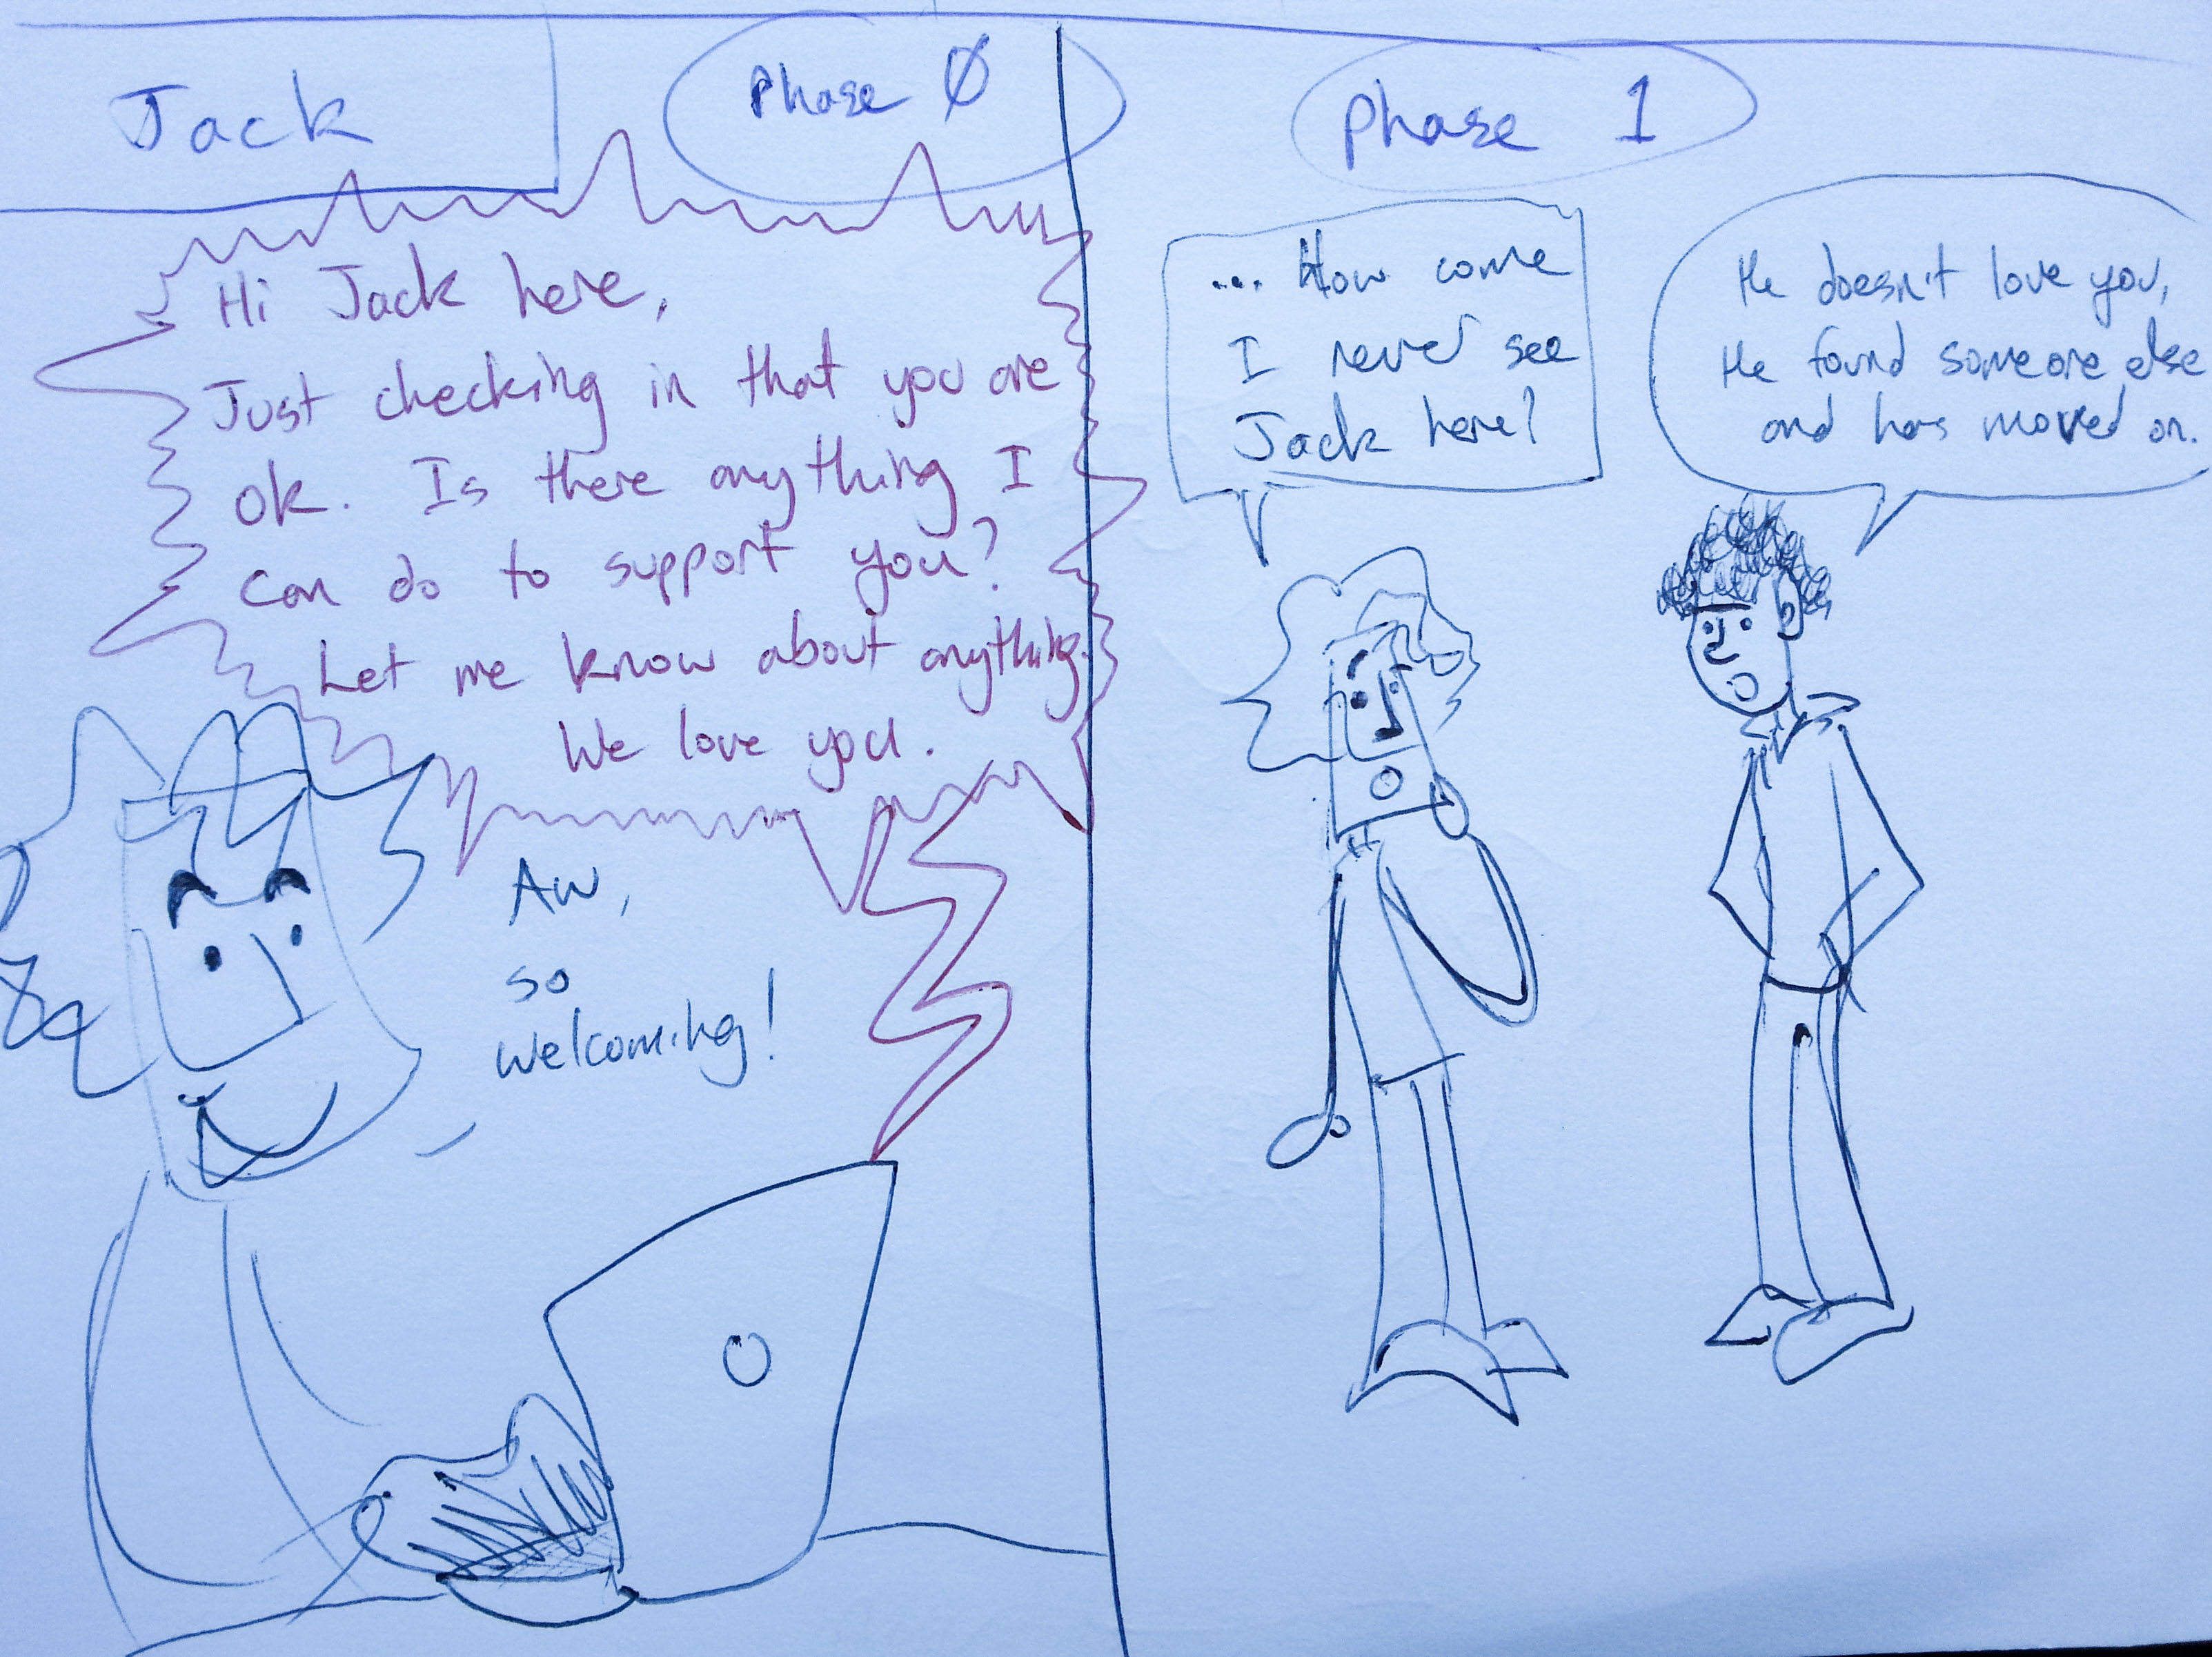 Jack
Phase 0
Hi Jack here,
Just checking in that you are
ok. Is there anything I
can do to support you?
Let me know about anything.
We love you.
Aw,
so
welcoming!
Phase 1
... How come
I never see
Jack here?
He doesn't love you,
He found someone else
and has moved on.